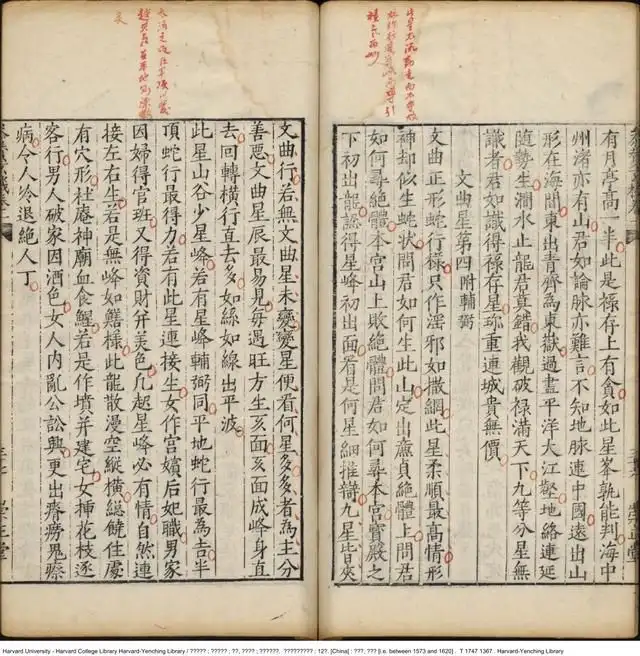 有月亭高一半此是禄存上有貪如此星峯孰能判海中
州渚亦有山君如論脉亦難言不知地脉連中國遠出山
形在海間東出青齊爲東嶽過盡平洋大江壑地絡連延
隨勢生澗水止龍君莫錯我觀破禄滿天下九等分星無
識者君如識得禄存星珎重連城貴無價
文曲星第四附輔弼
文曲正形蛇行樣只作滛邪如撒網此星柔順最高情形
神却似生蛇状問君如何生此山定出㢘貞絶體上問君
如何尋絶體本宫山上敗絶體問君如何尋本宫寳殿之
下初出龍認得星峰初出面看是何星細推辯九星皆夾
文曲行若無文曲星未變變星便看何星多多者爲主分
善惡文曲星辰最易見每過旺方生亥面亥面成峰身直
去回轉横行直去多如絲如線出平波
此星山谷少星峰若有星峰輔弼同平地蛇行最爲吉半
頂蛇行最得力若有此星連接生女作宫嬪后妃職男家
因婦得官班又得資財并美色凣起星峰必有情自然連
接左右生若是無峰如鱔樣此龍散漫空縱横縱饒住處
有穴形社庵神廟血食鰹若是作墳并建宅女揷花枝逐
客行男人破家因酒色女人内亂公訟興更出瘠癆鬼瘵
病令人冷退絶人丁
Harvard University - Harvard College Library Harvard-Yenching Library / ????? ; ????? ; ??, ???? ; ??????. ?????????? : 12?. [China] : ???, ??? [i.e. between 1573 and 1620] . T 1747 1367 . Harvard-Yenching Library